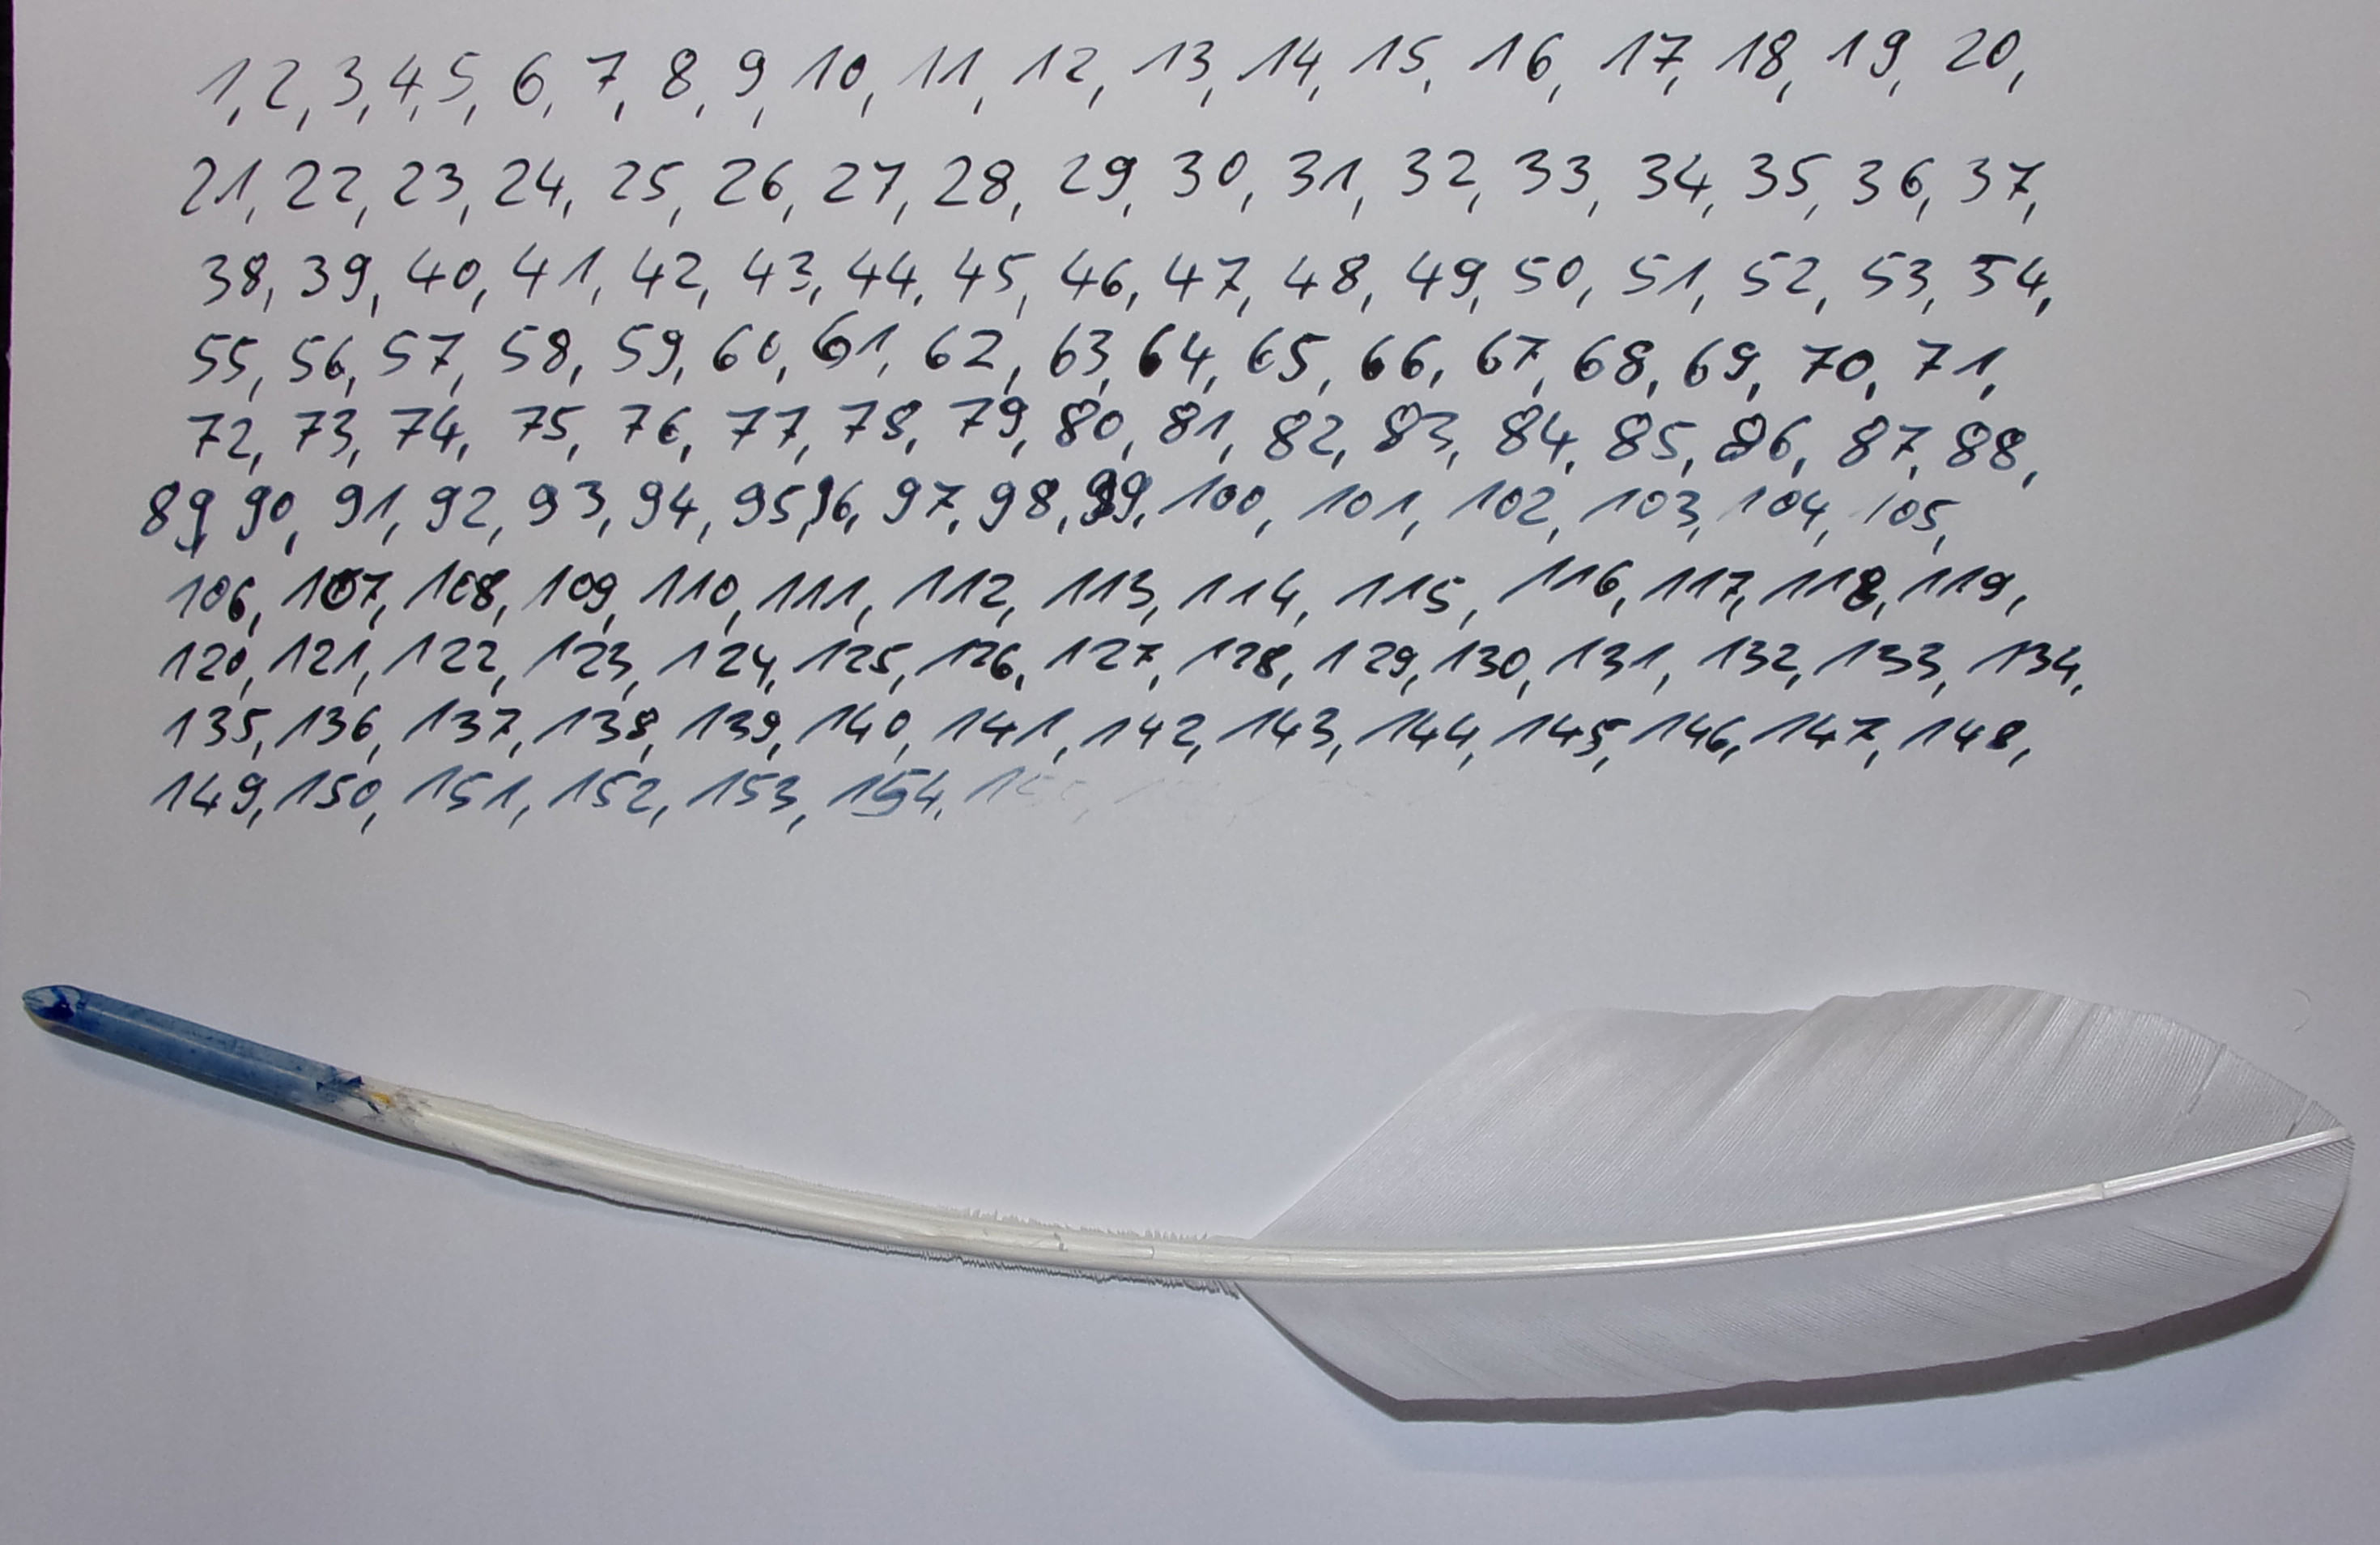 1, 2, 3, 4, 5, 6, 7, 8, 9, 10, 11, 12, 13, 14, 15, 16, 17, 18, 19, 20,
21, 22, 23, 24, 25, 26, 27, 28, 29, 30, 31, 32, 33, 34, 35, 36, 37,
38, 39, 40, 41, 42, 43, 44, 45, 46, 47, 48, 49, 50, 51, 52, 53, 54,
55, 56, 57, 58, 59, 60, 61, 62, 63, 64, 65, 66, 67, 68, 69, 70, 71,
72, 73, 74, 75, 76, 77, 78, 79, 80, 81, 82, 83, 84, 85, 86, 87, 88,
89, 90, 91, 92, 93, 94, 95, 96, 97, 98, 99, 100, 101, 102, 103, 104, 105,
106, 107, 108, 109, 110, 111, 112, 113, 114, 115, 116, 117, 118, 119,
120, 121, 122, 123, 124, 125, 126, 127, 128, 129, 130, 131, 132, 133, 134,
135, 136, 137, 138, 139, 140, 141, 142, 143, 144, 145, 146, 147, 148,
149, 150, 151, 152, 153, 154,